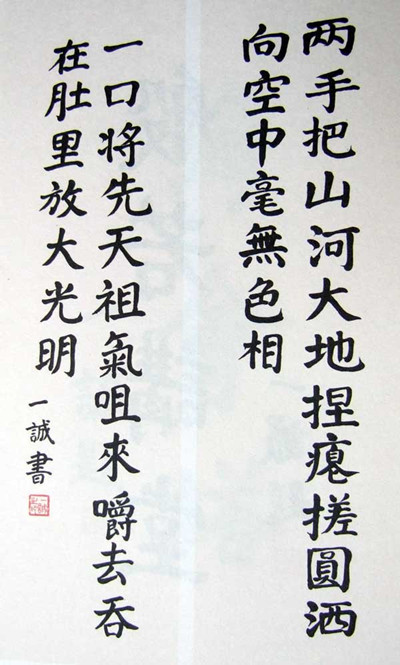 两手把山河大地捏瘪搓圓洒
向空中毫無色相
一口将先天祖氣咀來嚼去吞
在肚里放大光明
一誠書